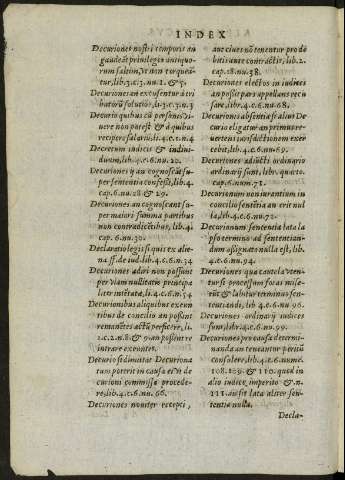 INDEX
Decuriones nostri temporis an
gaudeāt priuilegio antiquo-
rum saltem, vt non torqueā-
tur, lib.3.c.3.nu.1. & 5.
Decuriones an excusentur à tri
butorū solutiōe, li.3.c.3.n.3
Decurio quibus cū personis vi-
uere non potest & à quibus
recipere salariū, li.4.c.6.n.4
Decretum iudicis & indiui-
duum, lib.4.c.6.nu.20.
Decuriones ij an cognoscāt su-
per sententia confessi, lib.4.
cap.6.nu.28 & 29.
Decuriones an cognoscant su-
per maiori summa partibus
non contradicētibus, lib.4.
cap.6.nu.30.
Declaratio legis si quis ex alie-
na ff. de iud. lib.4.c.6.n.34
Decuriones adiri non possunt
per viam nullitatis principa
liter intētatæ, li.4.c.6.n.54
Decurionibus aliquibus exeun
tibus de concilio an possint
remanētes actū perficere, li.
1.c.2.n.8. & 9. an possint re
intrare exeuntes.
Decurio sic dimittat Decuriona
tum poterit in causa ei tāꝗ̄ de
curioni commissa procede-
re, lib.4.c.6.nu.66.
Decuriones nouiter recepti,
ante ciues nō tenentur pro de
bitis ante contractis, lib.2.
cap.18.nu.38.
Decuriones electos in iudices
an possit pars appellans recu
sare, libr.4.c.6.nu.68.
Decurionis absentia se alius De
curio eligatur an primus re-
uertens iurisdictionem exer
cebit, lib.4.c.6.nu.69.
Decuriones adiūcti ordinario
ordinarij sunt, lib. quarto.
cap.6.num.71.
Decurionum non iurantium in
concilio sentētia an erit nul
la, lib.4.c.6.nu.72.
Decurionum sententia lata la
pso termino ad sententian-
dum assignato nulla est, lib.
4.c.6.nu.94.
Decuriones qua cautela vten-
tur si processum foras mise-
rūt & labitur terminus sen-
tentiandi, lib 4.c.6.nu.96.
Decuriones ordinarij iudices
sunt, libr.4.c.6.nu.99.
Decuriones pro causa determi-
nanda an teneantur peritū
consulere, lib.4.c.6.nume.
108.109. & 110. quod in
alio iudice imperito & n.
111. an sit lata aliter sen-
tentia nulla.
Decla-